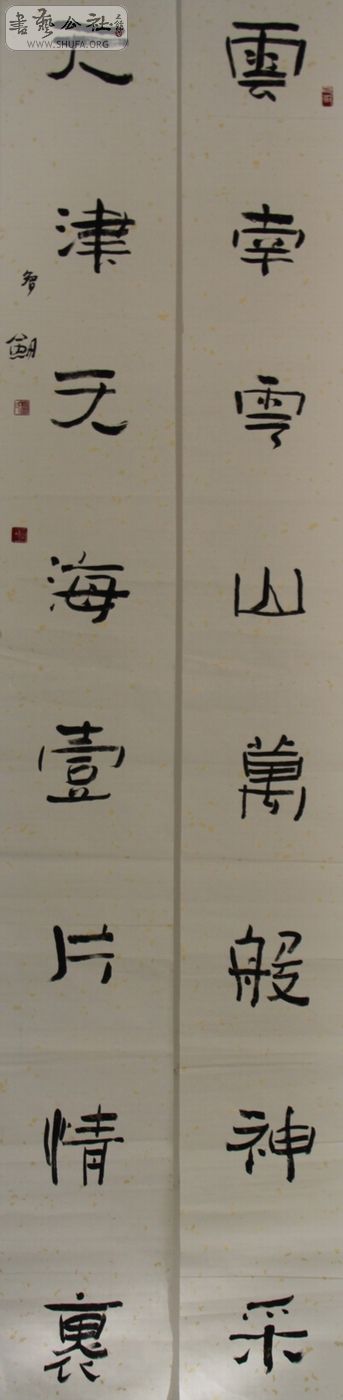 雲南雲山萬般神采
天津天海壹片情裏
書藝公社
WWW.SHUFA.ORG